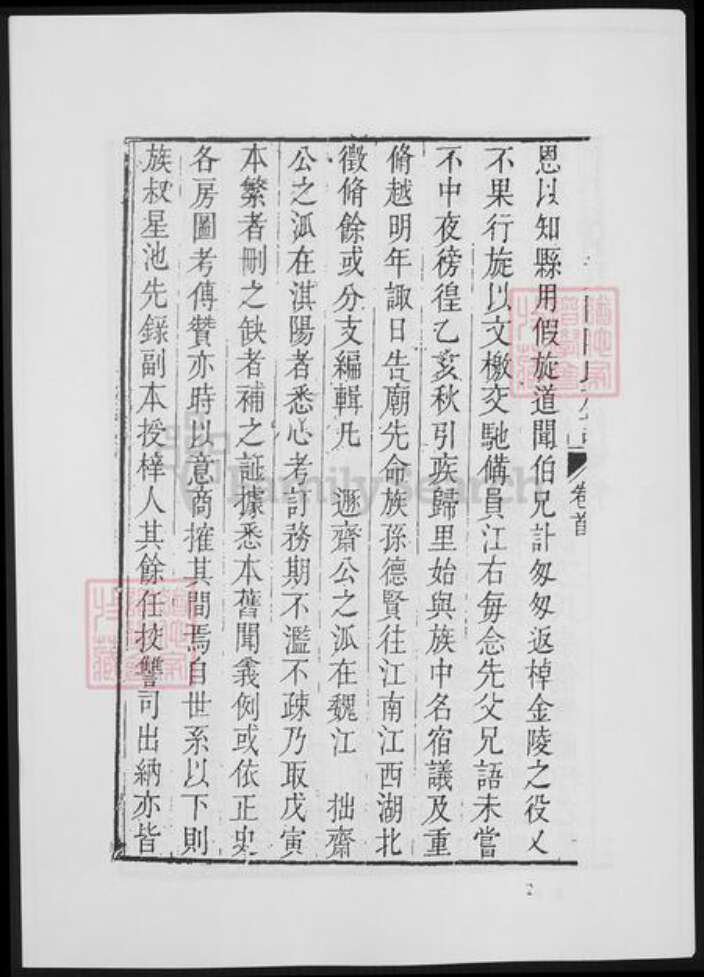 恩以知縣用假旋道聞伯兄訃匆匆返棹金陵之役乂
不果行旋以文檄交馳備員江右每念先父兄語未嘗
不中夜徬徨乙亥秋引疾歸里始與族中名宿議及重
脩越明年諏日告廟先命族孫德賢往江南江西湖北
徵脩餘或分支編輯凡 遯齋公之派在魏江 拙齋
公之派在淇陽者悉心考訂務期不濫不疎乃取戊寅
本繁者刪之缺者補之証據悉本舊聞義例或依正史
各房圖考傳贊亦時以意商搉其間焉自世系以下則
族叔星池先錄副本授梓人其餘任挍讐司出納亦皆
卷首
FamilySearch
2